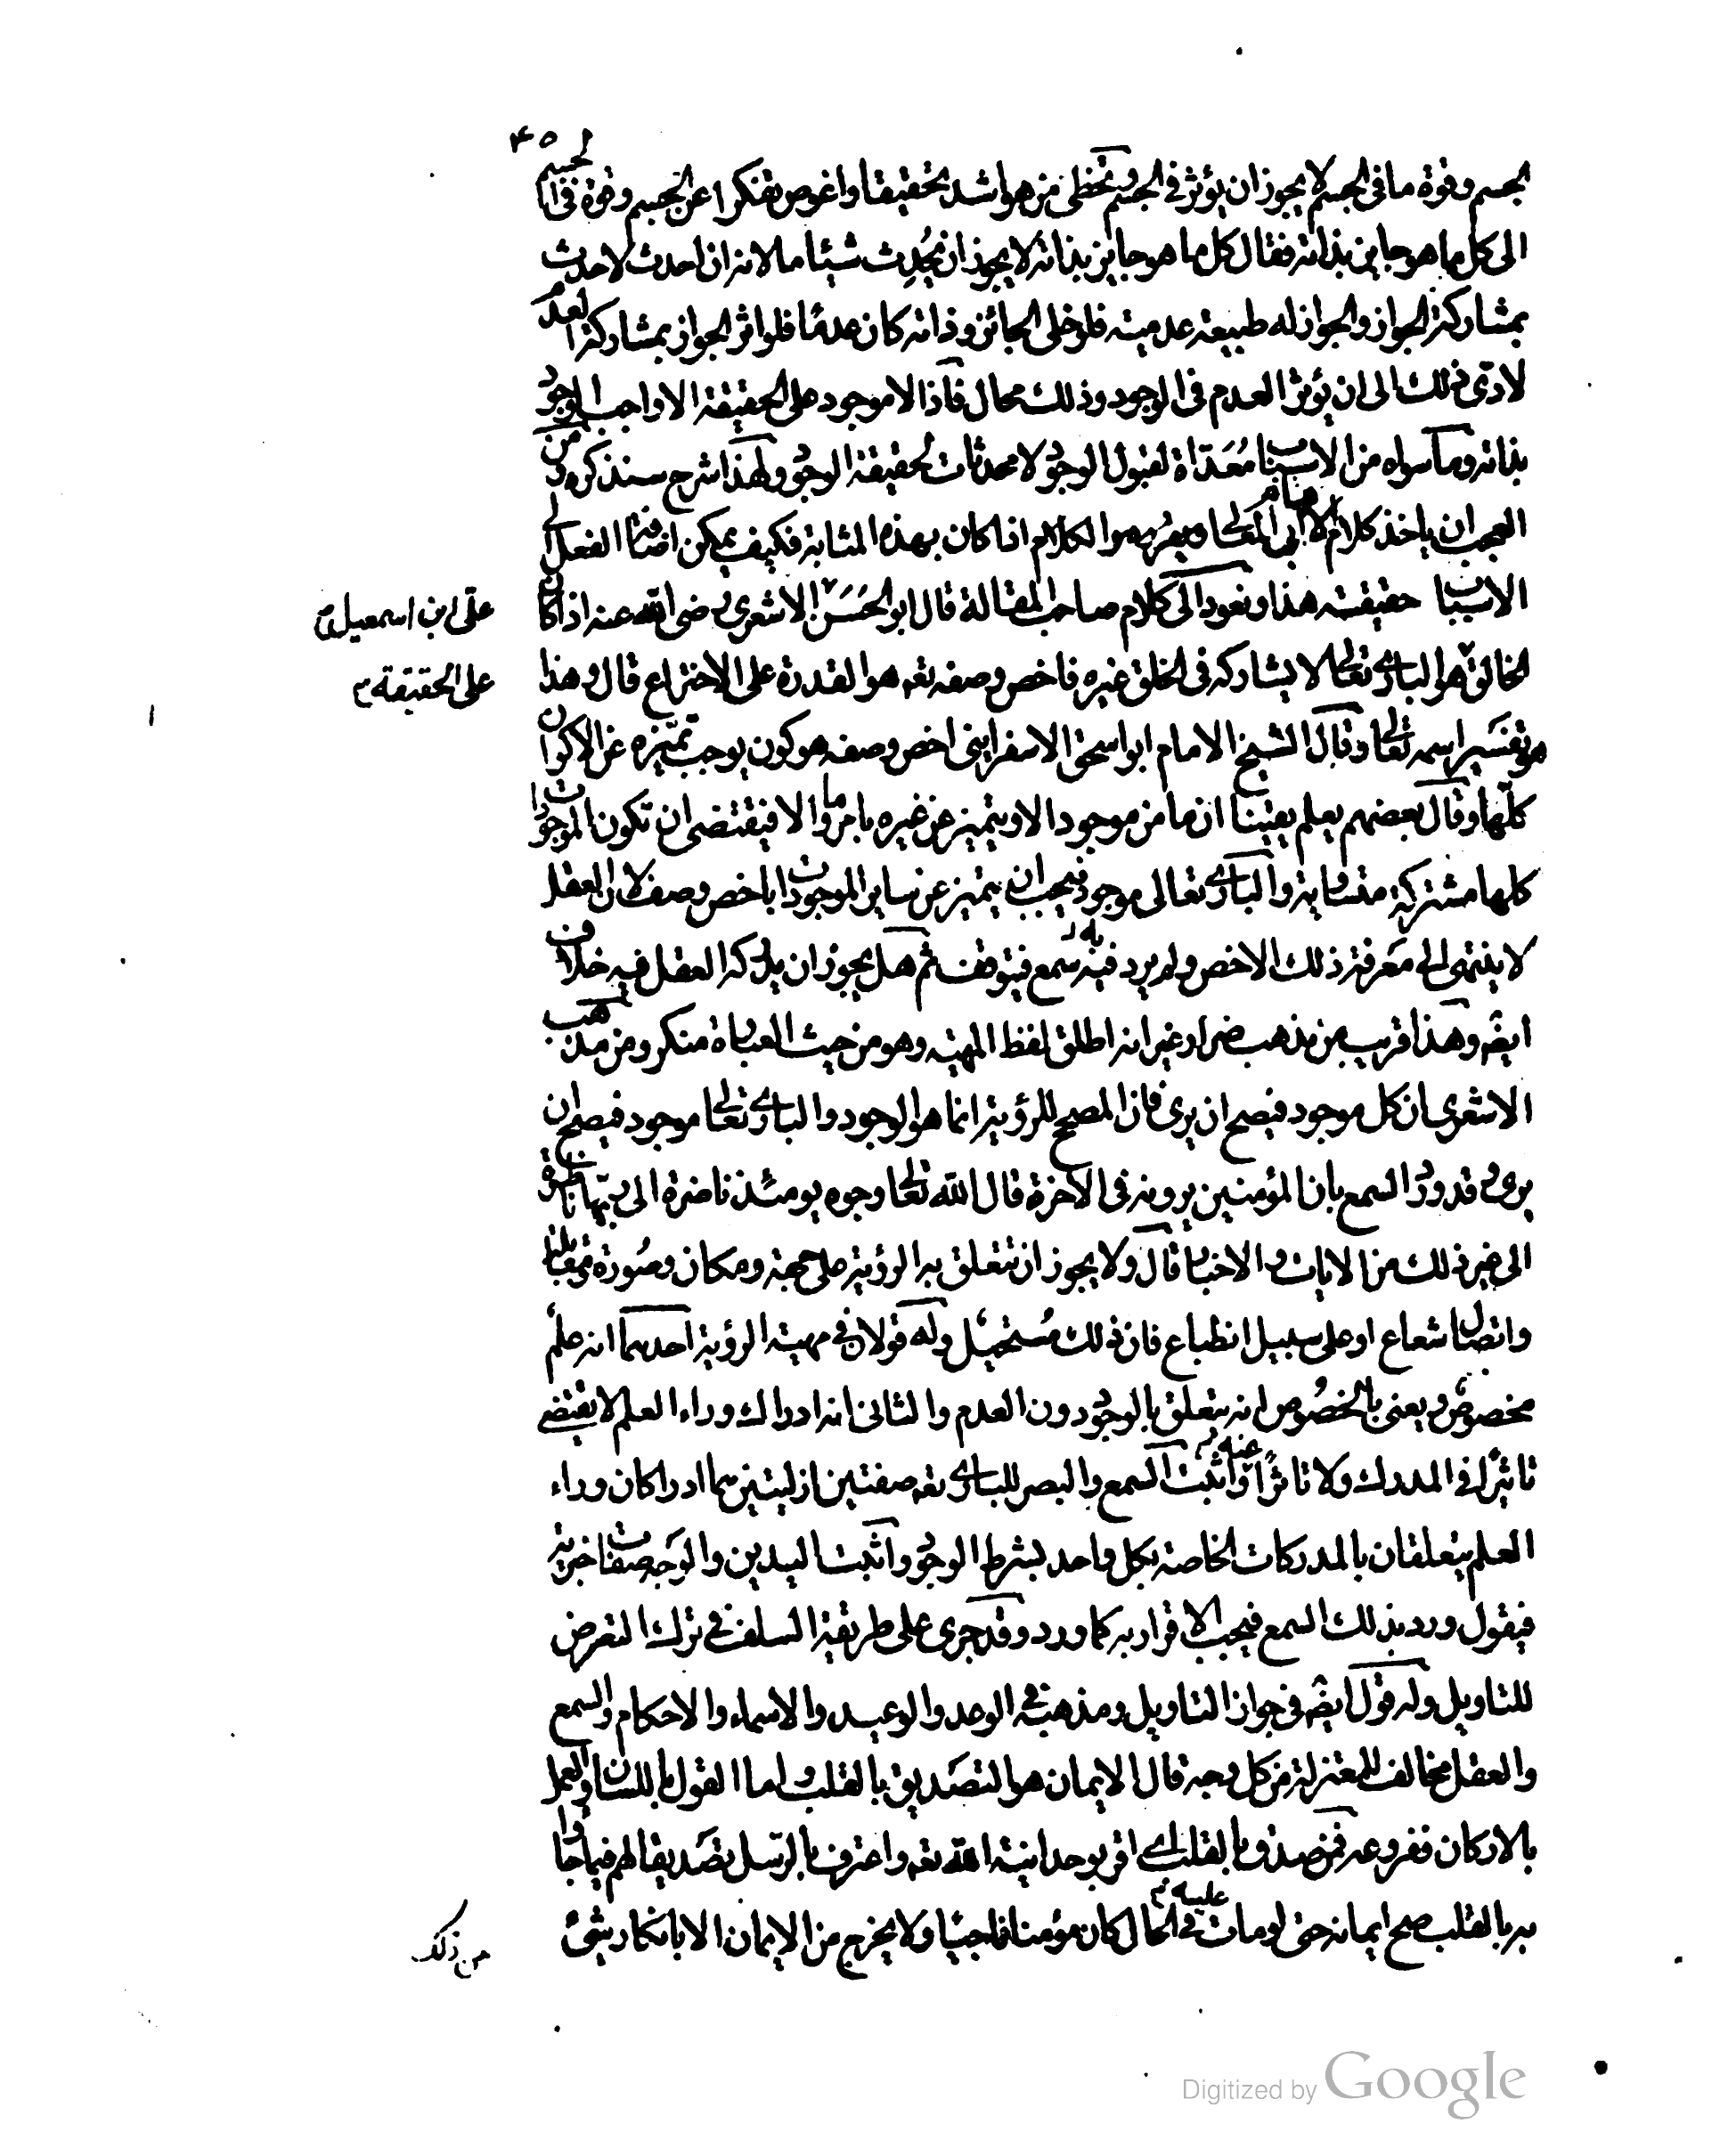 ۴۵
بجسم وقوة ما فى الجسم لا يجوز ان يؤثر فى الجسم وتخطى من هو اشد تحقيقا واغوص تفكرا عن الجسم وقوة فى الجسم
الى كل ما هو جايز بذاته فقال كل ما هو جايز بذاته لا يجوز ان يُحدِث شيئا ما لانه ان احدث لاحدث
بمشاركة الجواز والجواز له طبيعة عدمية فلو خلى الجائز وذاته كان عدمًا فلو اثر الجواز بمشاركة العدم
لادى ذلك الى ان يؤثر العدم فى الوجود وذلك محال فاذا لا موجد على الحقيقة الا واجب الوجود
بذاته وما سواه من الاسباب مُعَدّاة لقبول الوجود لا محدثات لحقيقة الوجود ولهذا شرح سنذكره ومن
العجب ان ياخذ كلام الامام ابى المعالى هو الكلام اذا كان بهذه المثابة فكيف يمكن اضافة الفعل الى
الاسباب حقيقة هذا ونعود الى كلام صاحب المقالة قال ابو الحَسَن الاشعرى رضى الله عنه اذا كان
على ابن اسمعيل
الخالق هو البارى تعالى لا يشاركه فى الخلق غيره فاخص وصفه تعه هو القدرة على الاختراع قال وهذا
على الحقيقة
هو تفسَير اسمه تعالى وقال الشيخ الامام ابو اسحق الاسفراينى اخص وصفه هو كون يوجب تميّزه عن الاكوان
كلّها وقال بعضهم يعلم يقينا ان ما من موجود الا ويتميز عن غيره بامر ما والا فيقتضى ان تكون الموجودات
كلها مشتركة متساوية والبارى تعالى موجود فيجب ان يتميز عن ساير الموجودات باخص وصف الا ان العقل
لا ينتهى الى مَعرفة ذلك الاخص ولم يرد فيه به سَمع فيتوقف ثم هل يجوز ان يدركه العقل فيه خلاف
ايضه وهذا قريب من مذهب ضرار غير انه اطلق لفظ المهية وهو من حيث العبارة منكر ومن مذهب
الاشعرى ان كل موجود فيصح ان يرى فان المصحح للرؤية انما هو الوجود والبارى تعالى موجود فيصح ان
يرى وقد ورد السمع بان المؤمنين يرونه فى الاخرة قال الله تعالى وجوه يومئذ ناضرة الى ربّها ناظرة
الى غير ذلك من الايات والاخبار قال ولا يجوز ان تتعلق به الرؤية على جهة ومكان وصُورة ومقابلة
واتصال شعاع او على سبيل انطباع فان ذلك مُستحيل وله قولان فى مهية الرؤية احدهما انه علم
مخصوص ويعنى بالخصُوص انه يتعلق بالوجود دون العدم والثانى انه ادراك وراء العلم لا يقتضى
تاثيرًا فى المدرك ولا تاثرًا عنه واثبت السمع والبصر للبارى تعه صفتين ازليتين هما ادراكان وراء
العلم يتعلقان بالمدركات الخاصة بكل واحد بشرط الوجود واثبت اليدين والوَجه صفات خبرية
فيقول ورد بذلك السمع فيجب الاقرار به كما ورد وقد جرى على طريقة السلف فى ترك التعرض
للتاويل وله قول ايضه فى جواز التاويل ومذهبه فى الوعد والوعيد والاسماء والاحكام والسمع
والعقل مخالف للمعتزلة من كل وجه قال الايمان هو التصَديق بالقلب واما القول باللسان والعمل
بالاركان ففروعه فمن صدق بالقلب اى اقر بوحدانية الله تعه واعترف بالرّسل تصَديقا لهم فيما جاوا
به بالقلب صح ايمانه حتى لو مات عليه فى الحال كان مؤمنا ناجيًا ولا يخرج من الايمان الا بانكار شئ
من ذلك
Digitized by Google